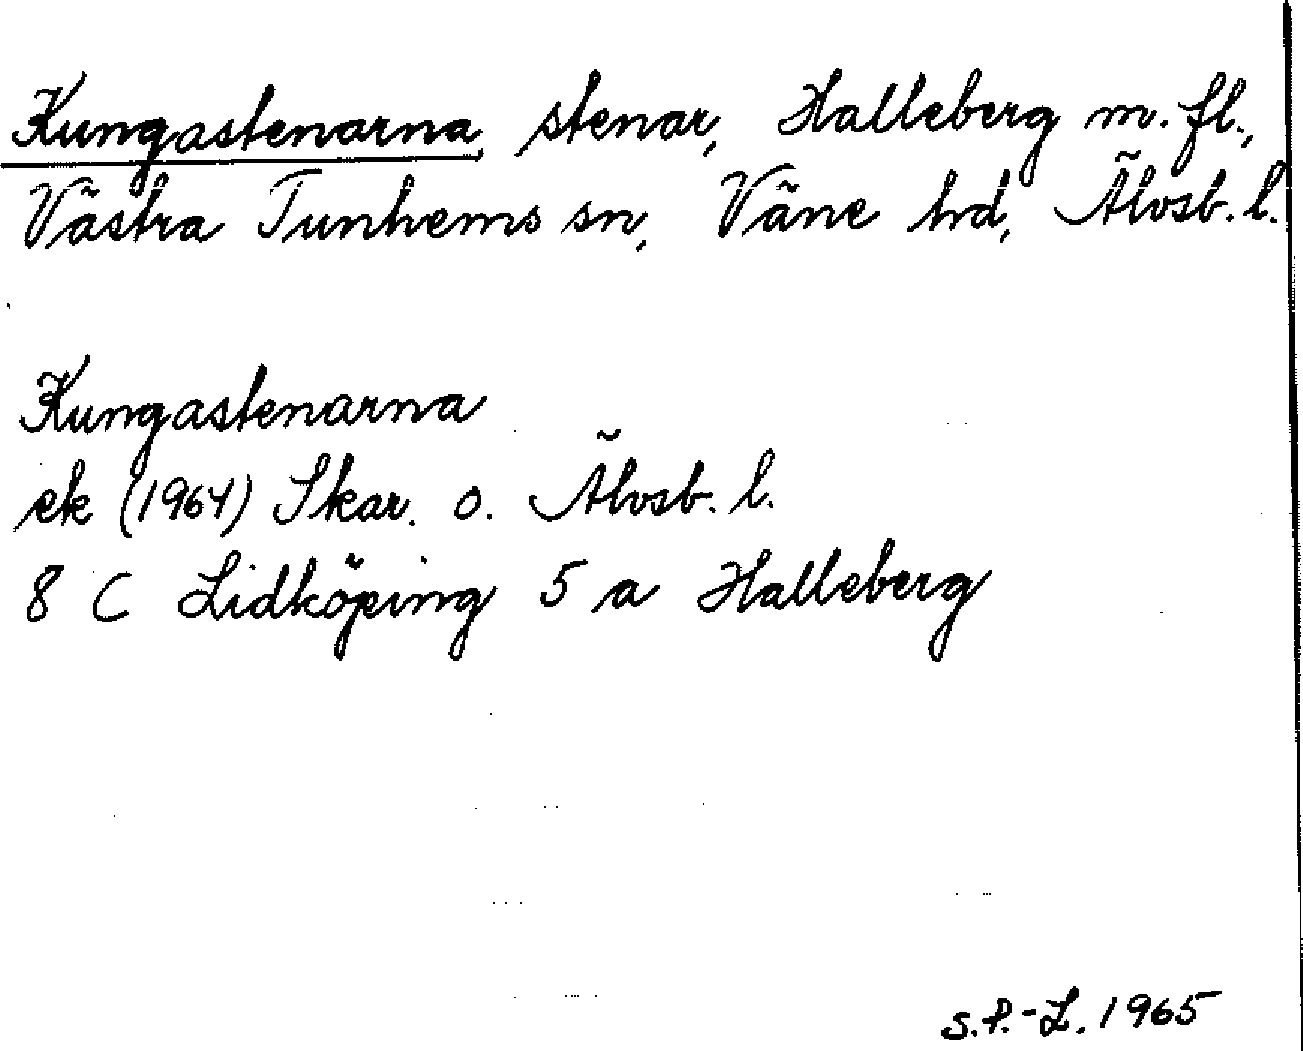 Kungastenarna, stenar, Halleberg m. fl.,
Västra Tunhems sn, Väne hd, Älvsb. l.
Kungastenarna
ek (1964) Skar. o. Älvsb. l.
8 C Lidköping 5 a Halleberg
S.P.-L. 1965